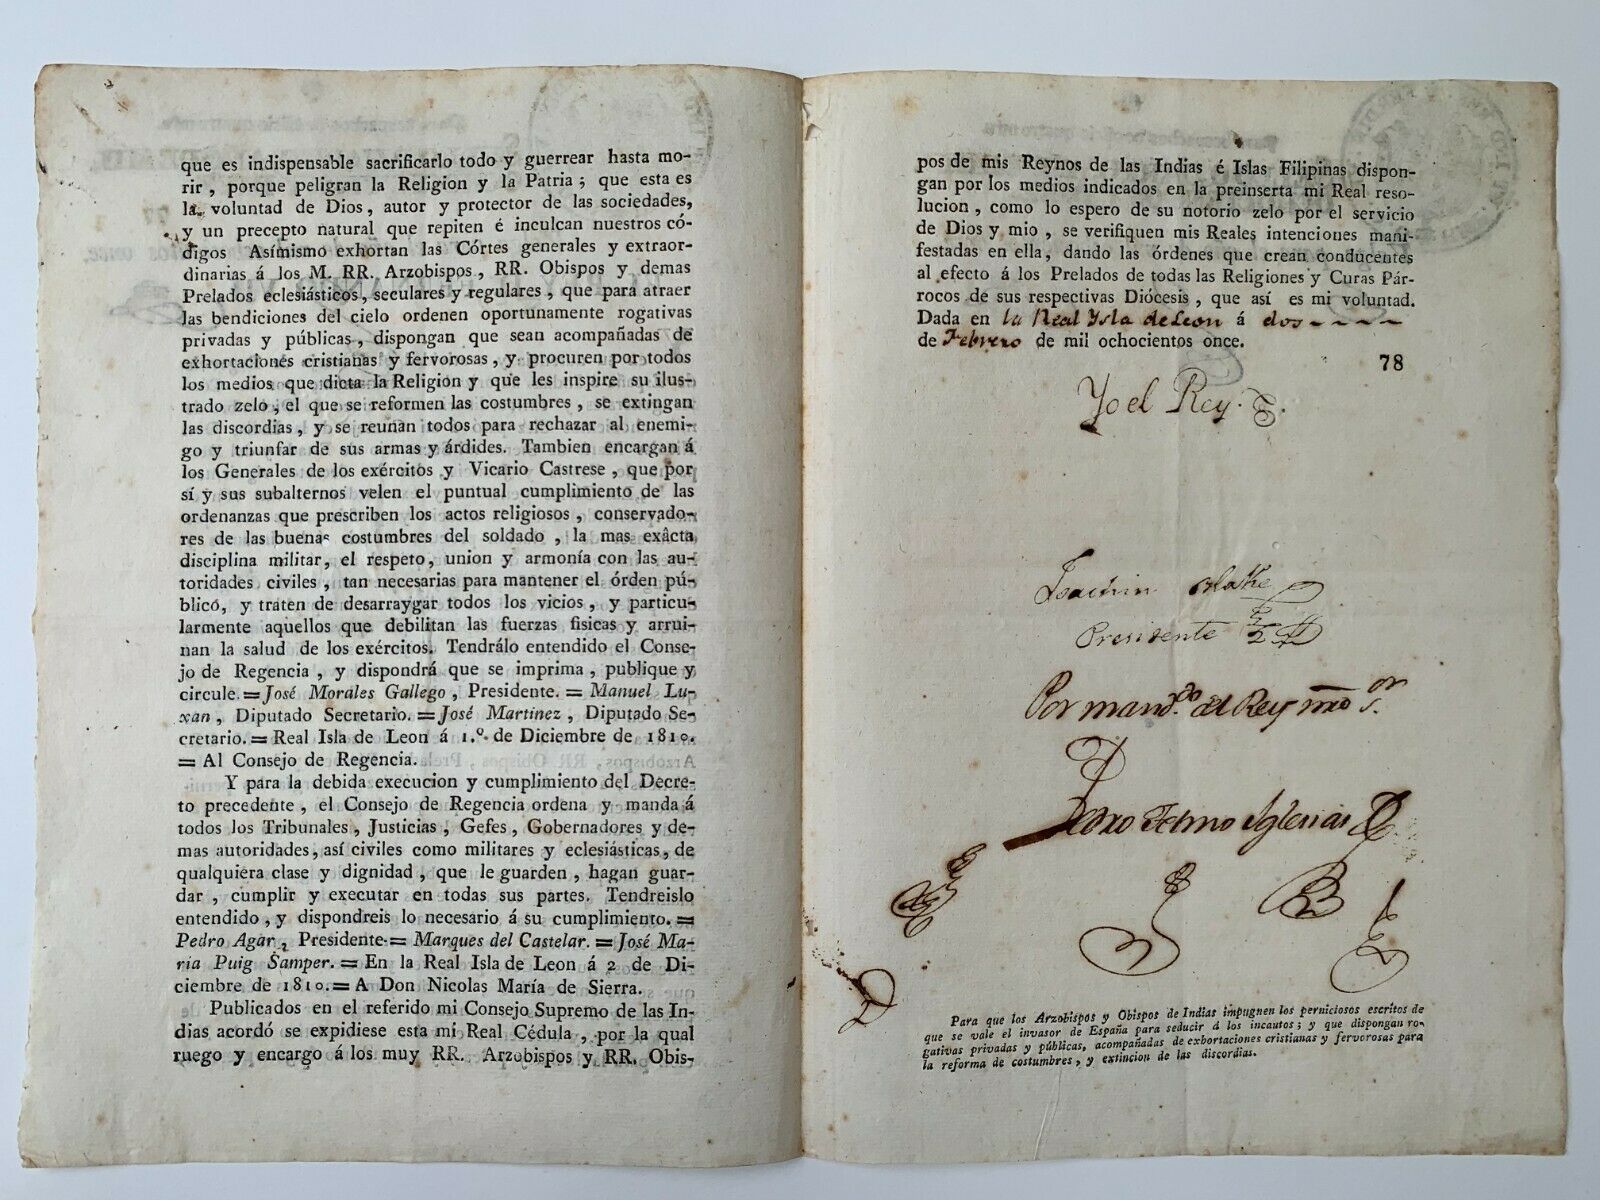 que es indispensable sacrificarlo todo y guerrear hasta mo-
rir, porque peligran la Religion y la Patria; que esta es
la voluntad de Dios, autor y protector de las sociedades,
y un precepto natural que repiten é inculcan nuestros có-
digos Asímismo exhortan las Córtes generales y extraor-
dinarias á los M. RR. Arzobispos, RR. Obispos y demas
Prelados eclesiásticos, seculares y regulares, que para atraer
las bendiciones del cielo ordenen oportunamente rogativas
privadas y públicas, dispongan que sean acompañadas de
exhortaciones cristianas y fervorosas, y procuren por todos
los medios que dicta la Religion y que les inspire su ilus-
trado zelo, el que se reformen las costumbres, se extingan
las discordias, y se reunan todos para rechazar al enemi-
go y triunfar de sus armas y árdides. Tambien encargan á
los Generales de los exércitos y Vicario Castrese, que por
sí y sus subalternos velen el puntual cumplimiento de las
ordenanzas que prescriben los actos religiosos, conservado-
res de las buenas costumbres del soldado, la mas exâcta
disciplina militar, el respeto, union y armonía con las au-
toridades civiles, tan necesarias para mantener el órden pú-
blico, y traten de desarraygar todos los vicios, y particu-
larmente aquellos que debilitan las fuerzas fisicas y arrui-
nan la salud de los exércitos. Tendrálo entendido el Conse-
jo de Regencia, y dispondrá que se imprima, publique y
circule.=José Morales Gallego, Presidente.=Manuel Lu-
xan, Diputado Secretario.=José Martinez, Diputado Se-
cretario.=Real Isla de Leon á 1.º de Diciembre de 1810.
=Al Consejo de Regencia.
Y para la debida execucion y cumplimiento del Decre-
to precedente, el Consejo de Regencia ordena y manda á
todos los Tribunales, Justicias, Gefes, Gobernadores y de-
mas autoridades, así civiles como militares y eclesiásticas, de
qualquiera clase y dignidad, que le guarden, hagan guar-
dar, cumplir y executar en todas sus partes. Tendreislo
entendido, y dispondreis lo necesario á su cumplimiento.=
Pedro Agar, Presidente.=Marques del Castelar.=José Ma-
ria Puig Samper.=En la Real Isla de Leon á 2 de Di-
ciembre de 1810.=A Don Nicolas María de Sierra.
Publicados en el referido mi Consejo Supremo de las In-
dias acordó se expidiese esta mi Real Cédula, por la qual
ruego y encargo á los muy RR. Arzobispos y RR. Obis-
pos de mis Reynos de las Indias é Islas Filipinas dispon-
gan por los medios indicados en la preinserta mi Real reso-
lucion, como lo espero de su notorio zelo por el servicio
de Dios y mio, se verifiquen mis Reales intenciones mani-
festadas en ella, dando las órdenes que crean conducentes
al efecto á los Prelados de todas las Religiones y Curas Pár-
rocos de sus respectivas Diócesis, que así es mi voluntad.
Dada en la Real Ysla de Leon á dos----
de Febrero de mil ochocientos once.
78
Yo el Rey.
Joachin Blake
Presidente
Por mand.do del Rey nro s.or
Pedro Telmo Iglesias
Para que los Arzobispos y Obispos de Indias impugnen los perniciosos escritos de
que se vale el invasor de España para seducir á los incautos; y que dispongan ro-
gativas privadas y públicas, acompañadas de exhortaciones cristianas y fervorosas para
la reforma de costumbres, y extincion de las discordias.